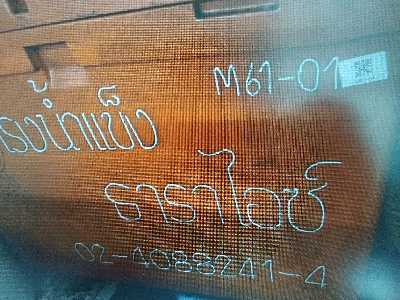 M61-01
ลังน้ำแข็ง
ธาราไอซ์
02-4088241-4